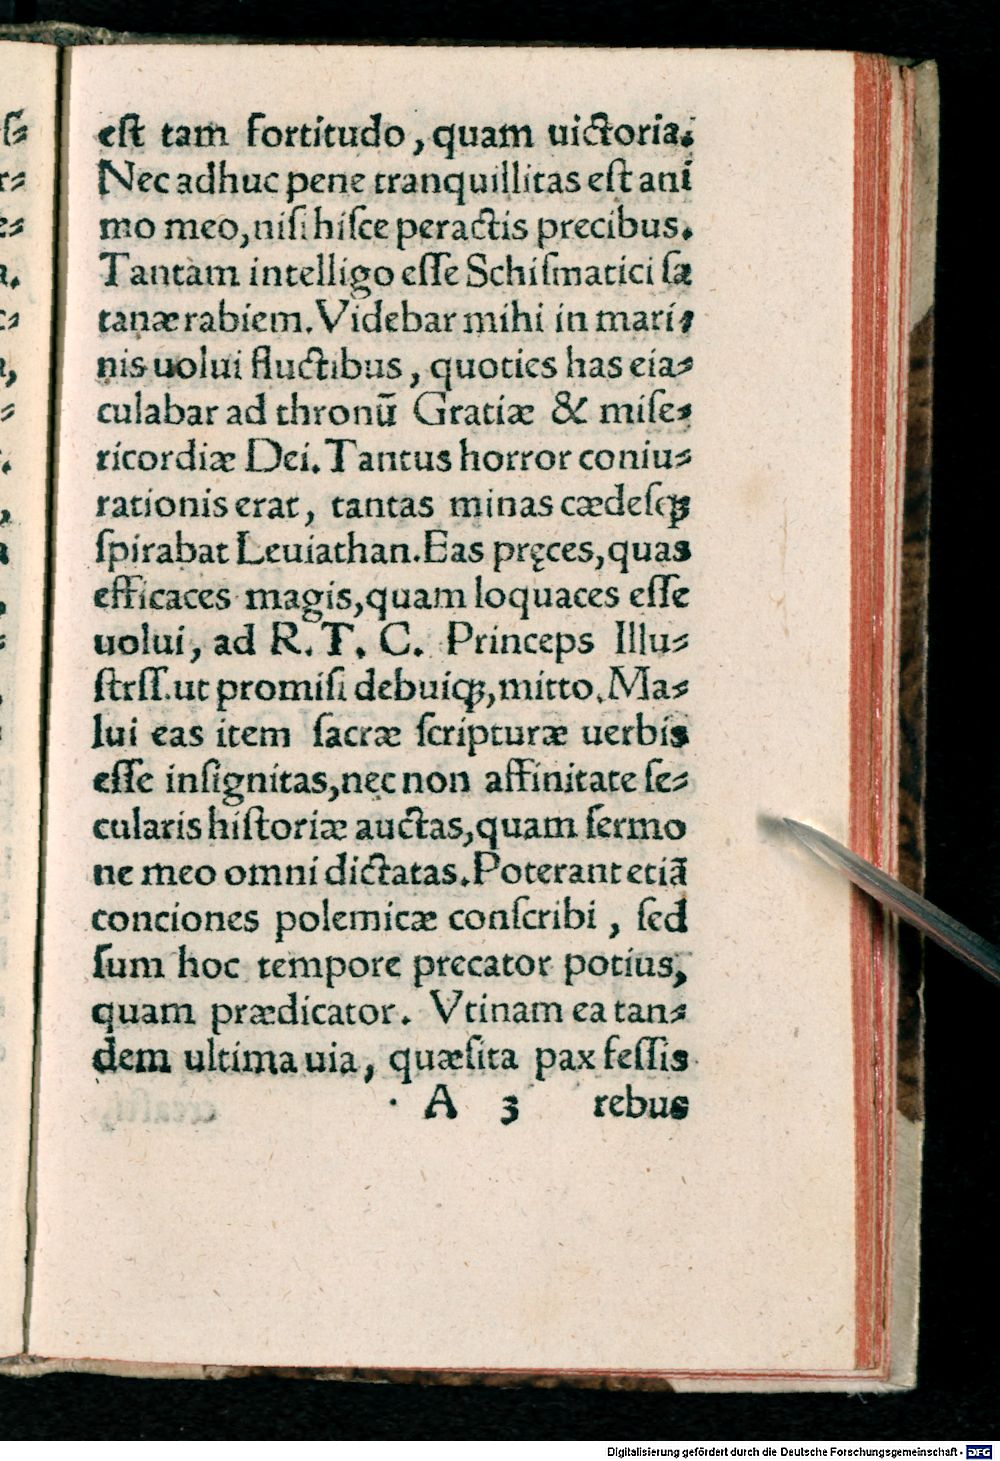 est tam fortitudo, quam uictoria.
Nec adhuc pene tranquillitas est ani
mo meo, nisi hisce peractis precibus.
Tantam intelligo esse Schismatici sa
tanæ rabiem. Videbar mihi in mari⸗
nis uolui fluctibus, quoties has eia⸗
culabar ad thronū Gratiæ & mise⸗
ricordiæ Dei. Tantus horror coniu⸗
rationis erat, tantas minas cædesqꝫ
spirabat Leuiathan. Eas pręces, quas
efficaces magis, quam loquaces esse
uolui, ad R. T. C. Princeps Illu⸗
strss. ut promisi debuiqꝫ, mitto. Ma⸗
lui eas item sacræ scripturæ uerbis
esse insignitas, nec non affinitate se⸗
cularis historiæ auctas, quam sermo
ne meo omni dictatas. Poterant etiā
conciones polemicæ conscribi, sed
sum hoc tempore precator potius,
quam prædicator. Vtinam ea tan⸗
dem ultima uia, quæsita pax fessis
A 3 rebus
Digitalisierung gefördert durch die Deutsche Forschungsgemeinschaft - DFG